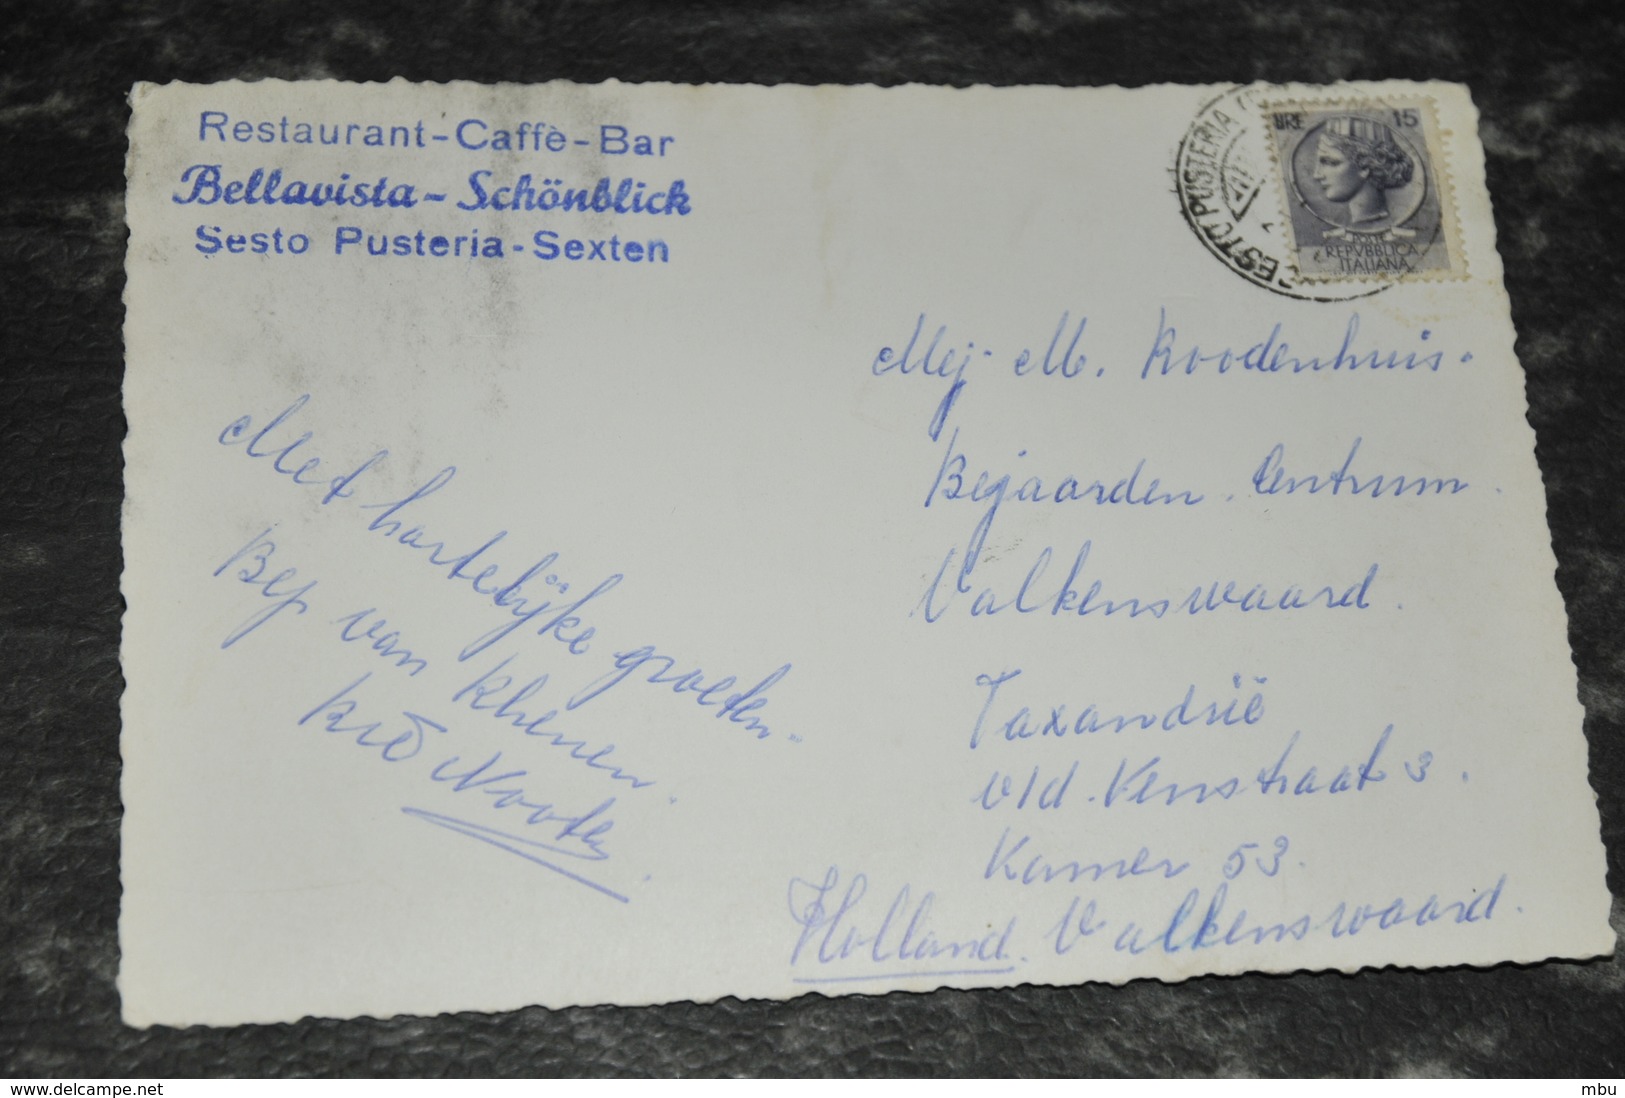 Restaurant-Caffè-Bar
Bellavista-Schönblick
Sesto Pusteria-Sexten
SESTO PUSTERIA
LIRE 15
REPVBBLICA
ITALIANA
Mej. M. Roodenhuis.
Bejaarden Centrum.
Valkenswaard.
Taxandrië
v/d. Venstraat 3.
Kamer 53.
Holland. Valkenswaard.
Met hartelijke groeten.
Bep van Rhenen.
www.delcampe.net
mbu